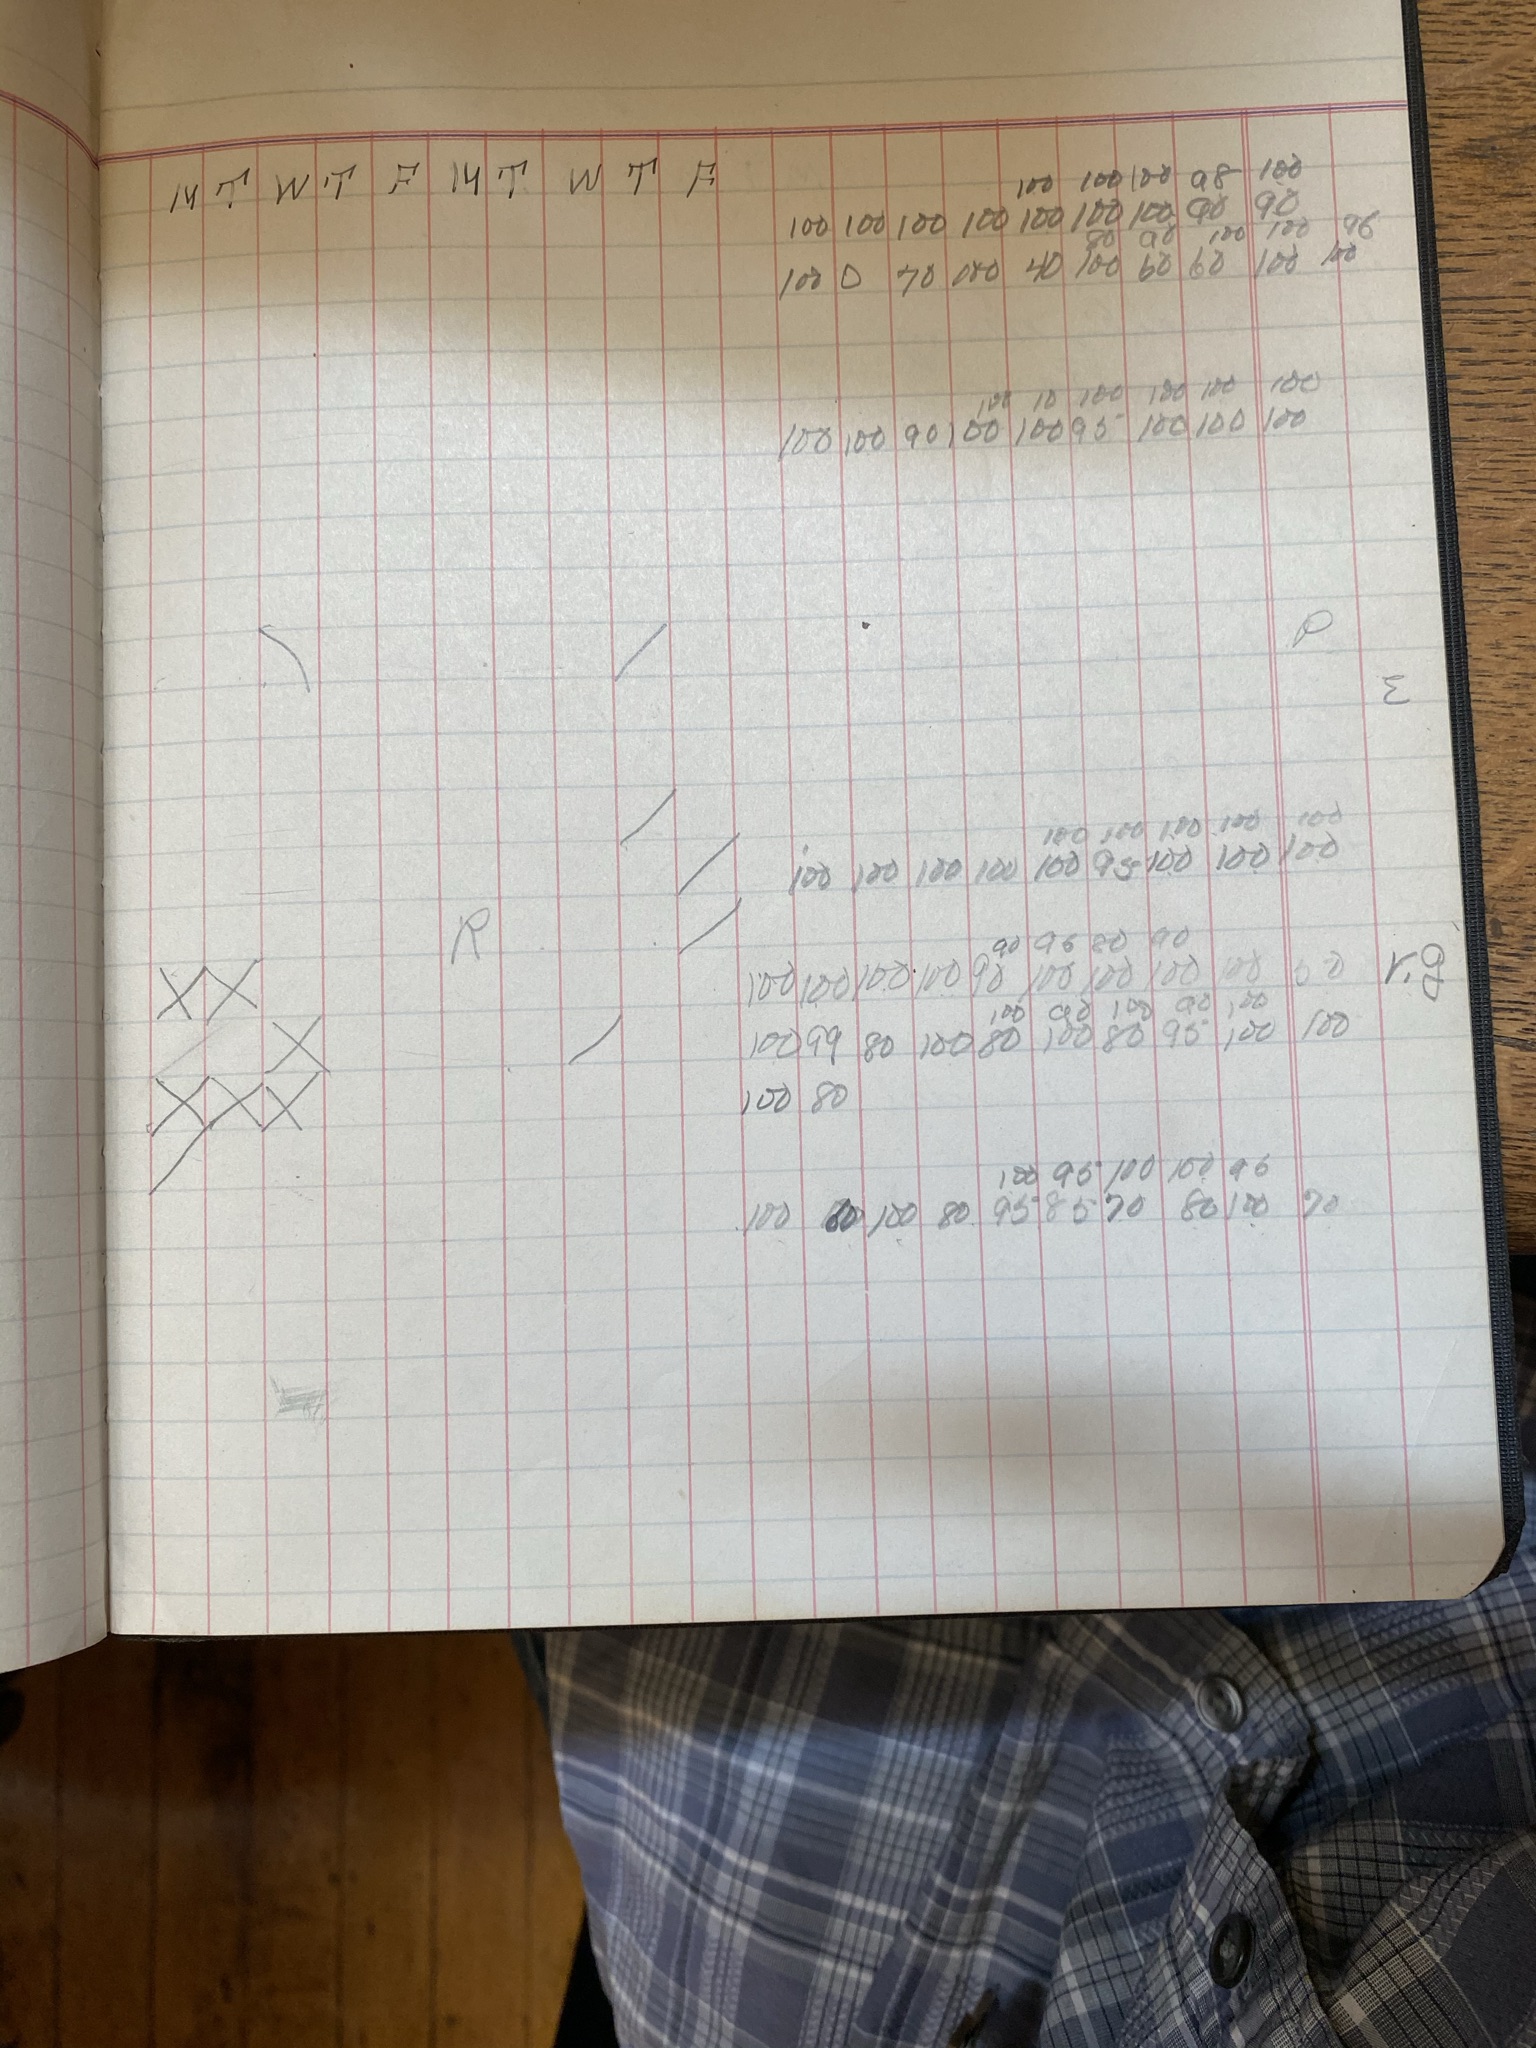 M T W T F M T W T F
100 100 100 98 100
100 100 100 100 100 100 100 90 90
80 90 100 100 96
100 0 70 100 40 100 60 60 100 100
100 10 100 100 100 100
100 100 90 100 100 95 100 100 100
P
100 100 100 100 100
100 100 100 100 100 95 100 100 100
R
90 95 80 90
X X 100 100 100 100 90 100 100 100 100
100 90 100 90 100
X 100 99 80 100 80 100 80 95 100 100
X X X 100 80
100 95 100 100 95
100 80 100 80 95 85 70 80 100 70